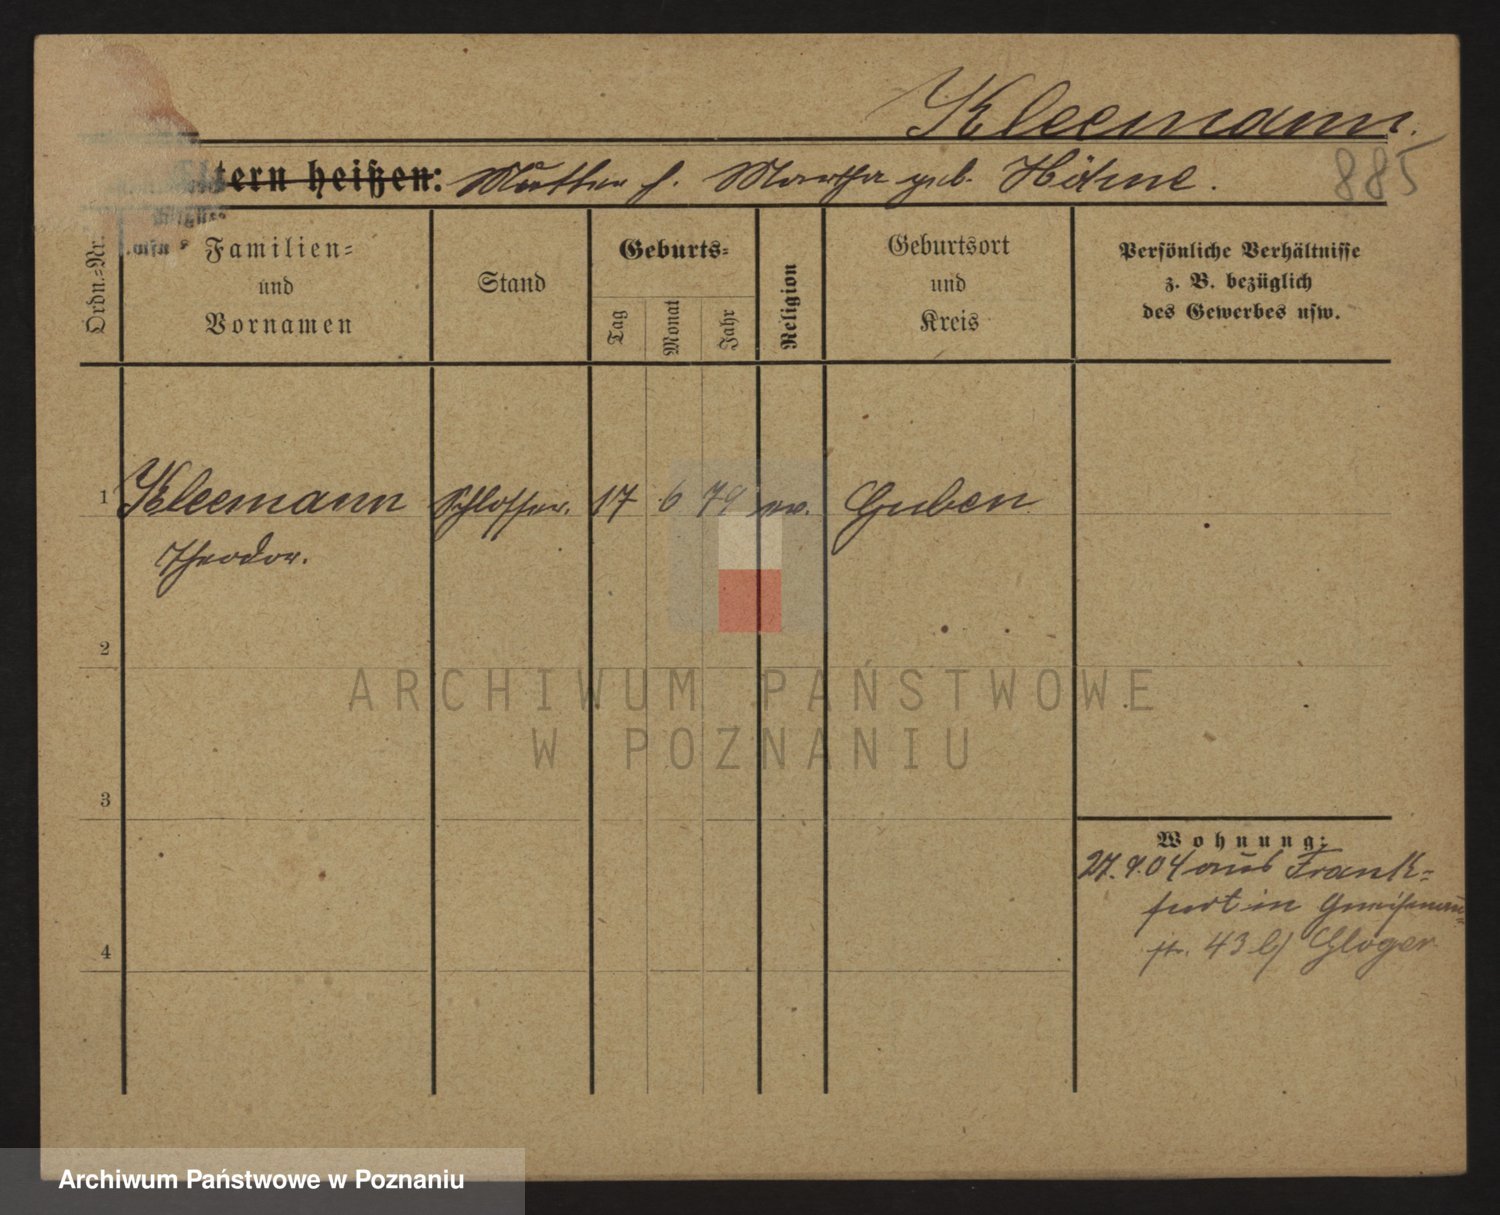 Kleemann.
885
Eltern heißen: Mutter h. Martha geb. Höhne.
Ordn.-Nr.
Familien-
und
Vornamen
Stand
Geburts-
Tag
Monat
Jahr
Religion
Geburtsort
und
Kreis
Persönliche Verhältnisse
z. B. bezüglich
des Gewerbes usw.
1 Kleemann Schlosser. 17 6 79 ev. Guben
Theodor.
2
3
4
Wohnung:
27.9.04 aus Frank=
furt in Gneisenau=
str. 43 b/ Gloger
ARCHIWUM PAŃSTWOWE
W POZNANIU
Archiwum Państwowe w Poznaniu